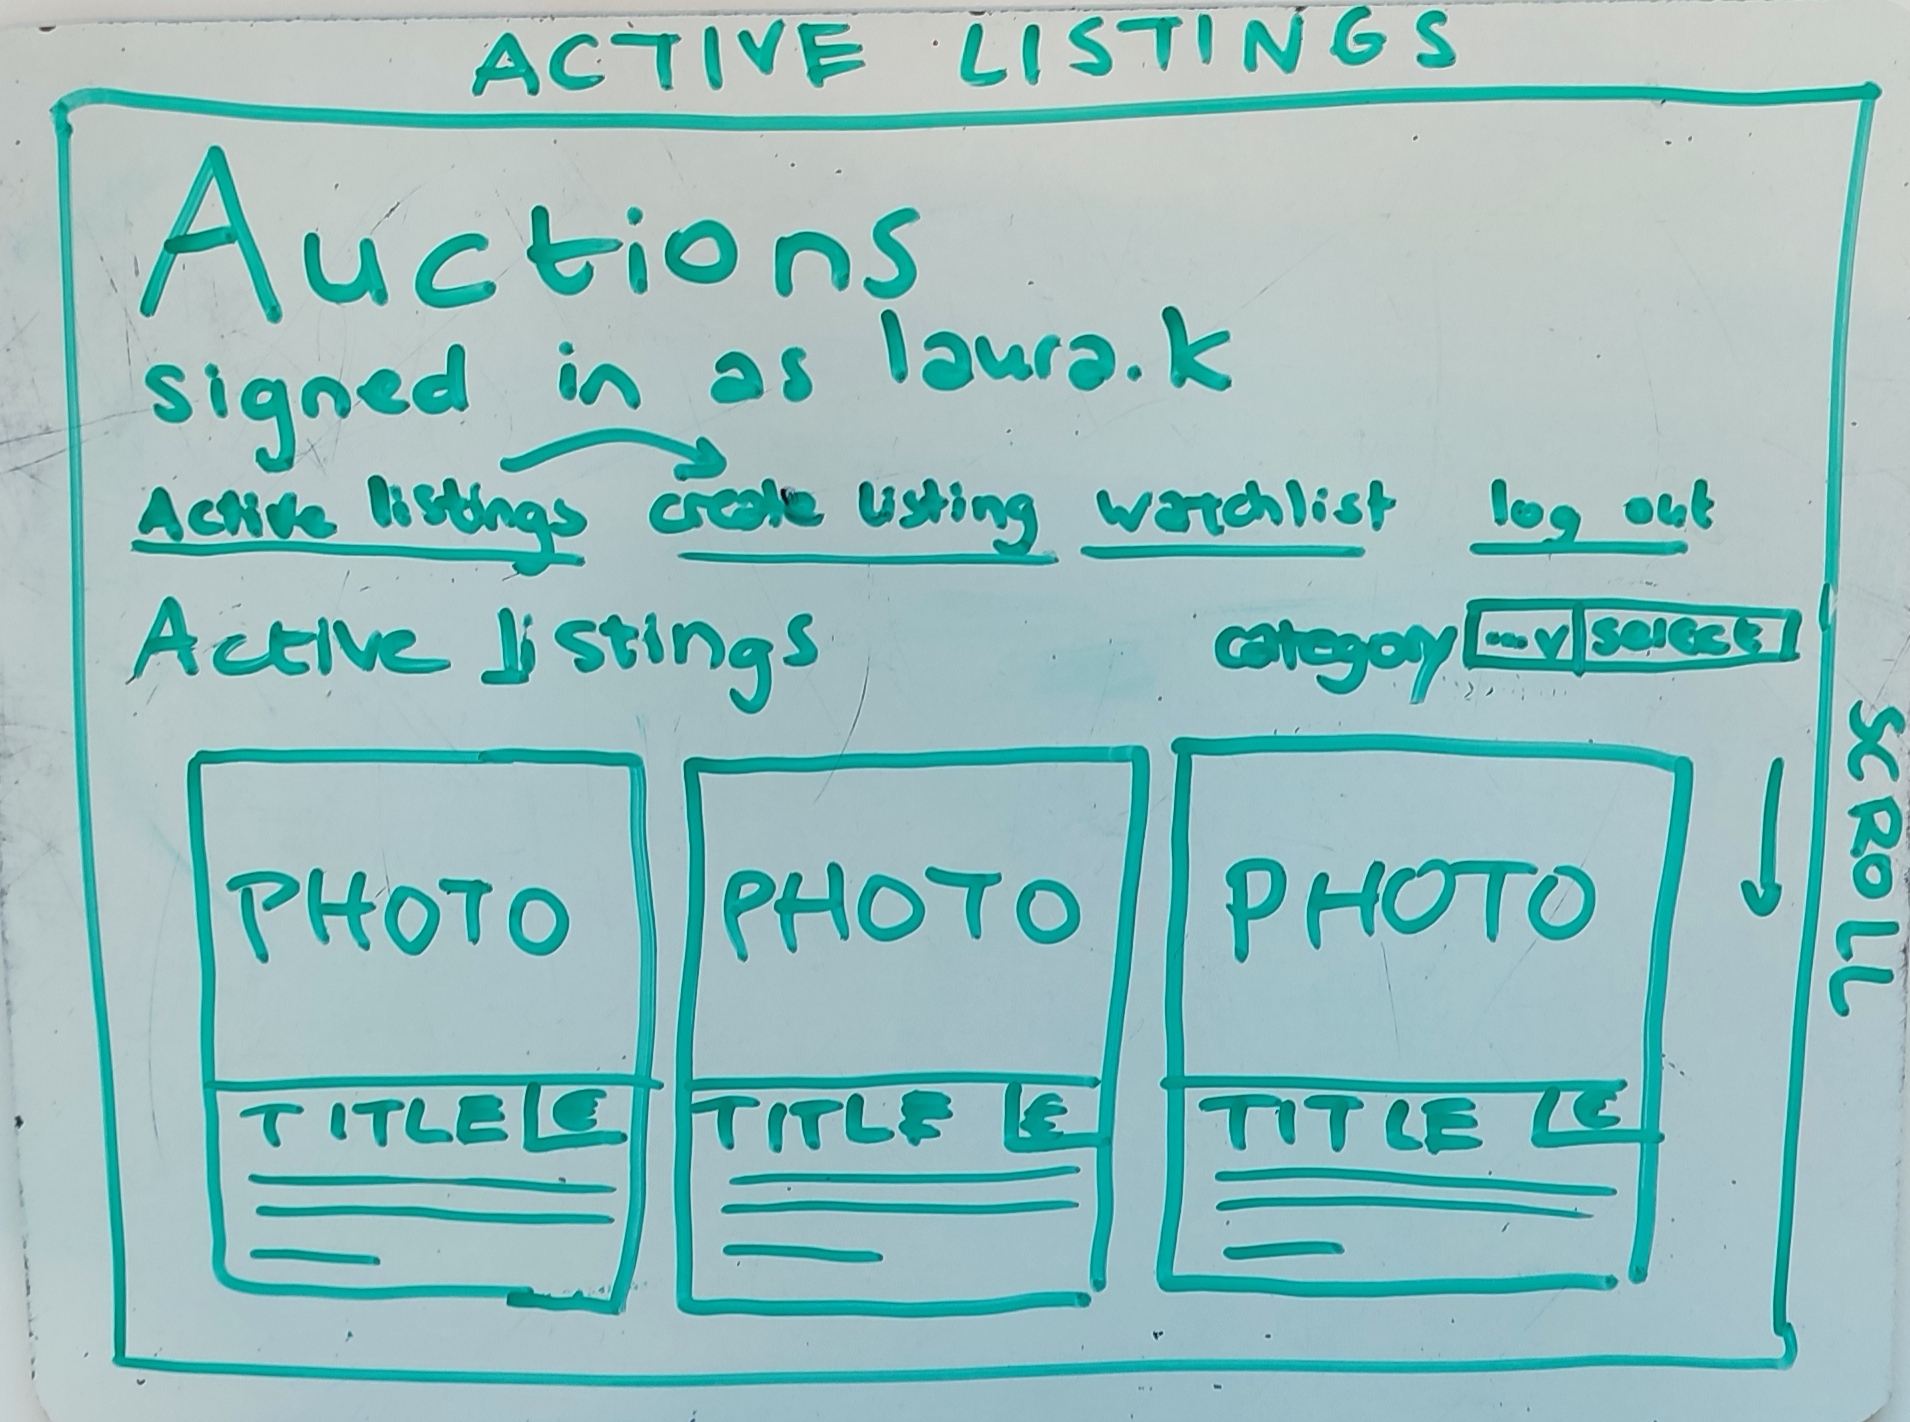 ACTIVE LISTINGS
Auctions
signed in as laura.k
Active listings create listing watchlist log out
Active listings category ... v select
SCROLL
PHOTO PHOTO PHOTO
TITLE € TITLE € TITLE €